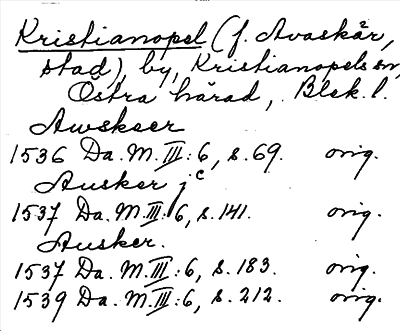 Kristianopel (f. Avaskär,
stad), by, Kristianopels sn,
Östra härad, Blek. l.
Awskeer
1536 Da. M. III: 6, s. 69. orig.
Ausker jc
1537 Da. M. III: 6, s. 141. orig.
Ausker.
1537 Da. M. III: 6, s. 183. orig.
1539 Da. M. III: 6, s. 212. orig.